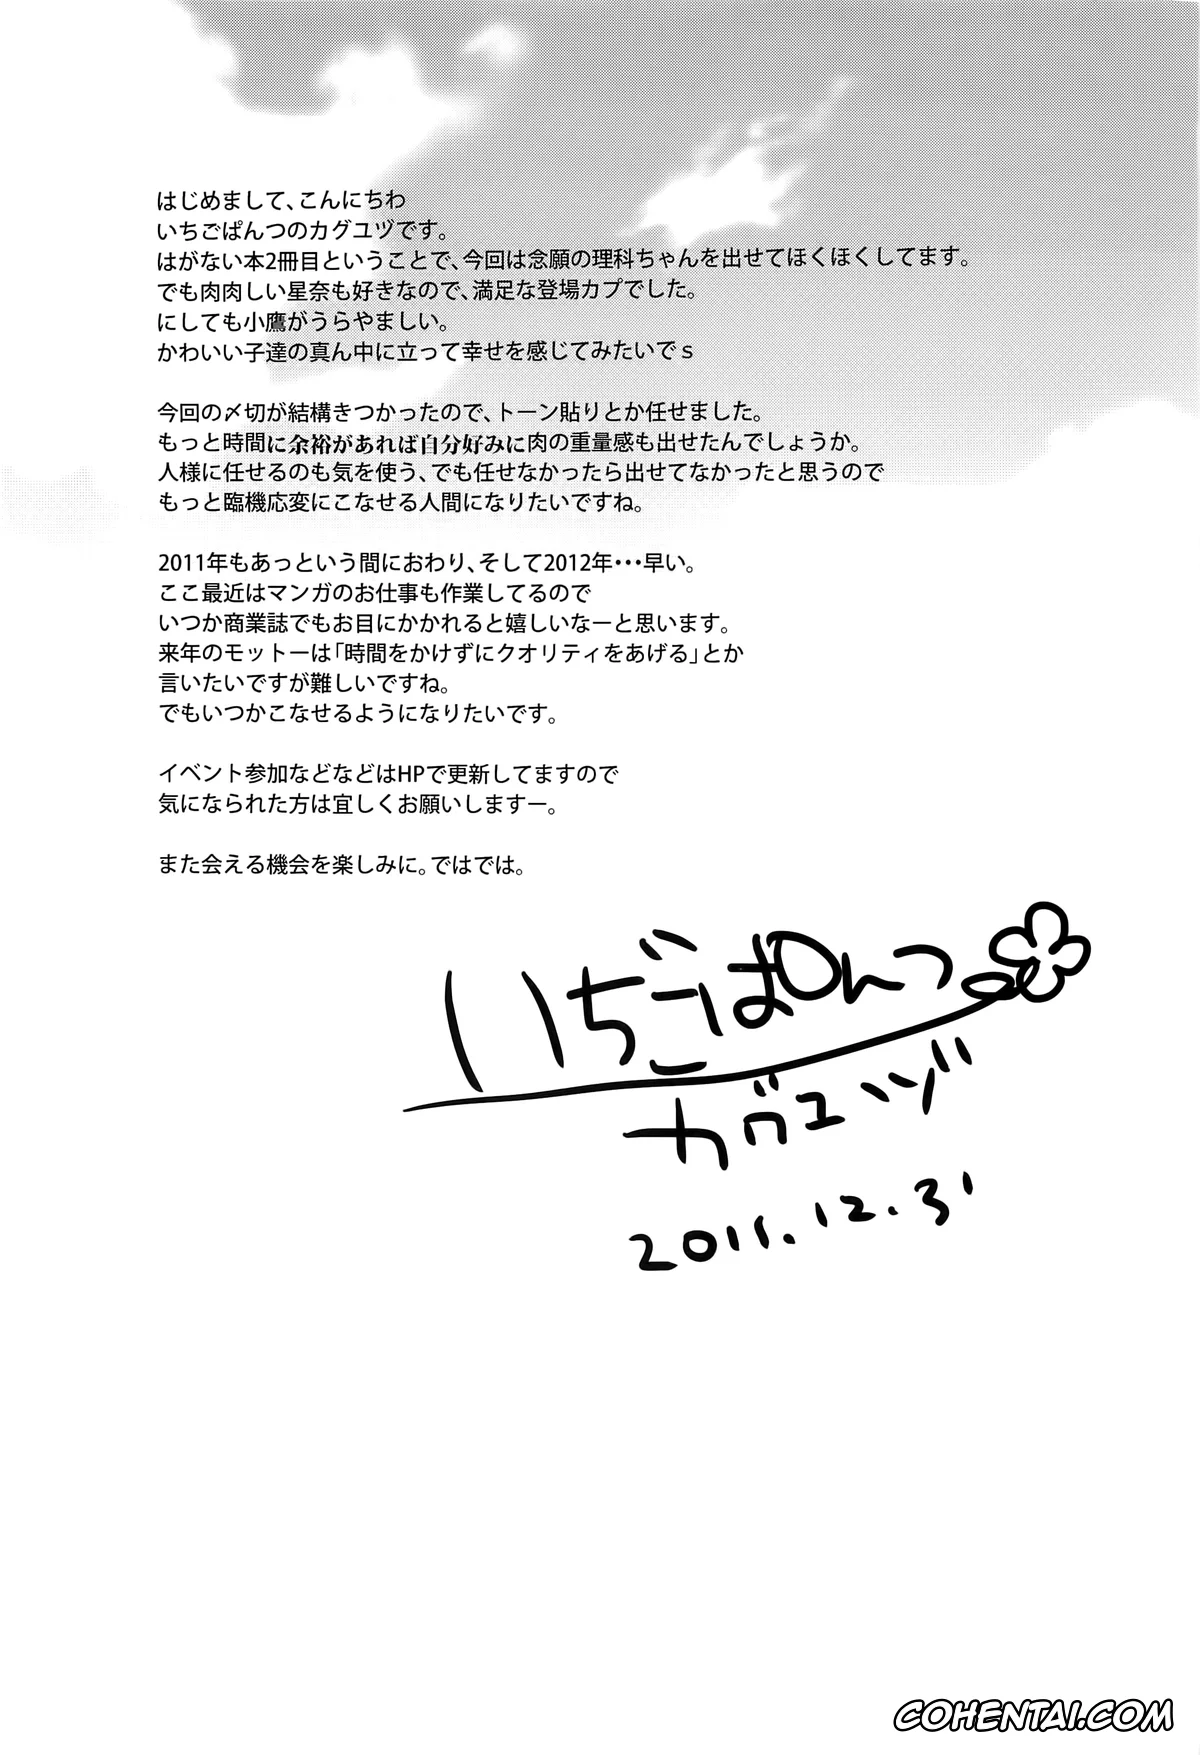 はじめまして、こんにちわ
いちごぱんつのカグユヅです。
はがない本2冊目ということで、今回は念願の理科ちゃんを出せてほくほくしてます。
でも肉肉しい星奈も好きなので、満足な登場カプでした。
にしても小鷹がうらやましい。
かわいい子達の真ん中に立って幸せを感じてみたいでｓ
今回の〆切が結構きつかったので、トーン貼りとか任せました。
もっと時間に余裕があれば自分好みに肉の重量感も出せたんでしょうか。
人様に任せるのも気を使う、でも任せなかったら出せてなかったと思うので
もっと臨機応変にこなせる人間になりたいですね。
2011年もあっという間におわり、そして2012年・・・早い。
ここ最近はマンガのお仕事も作業してるので
いつか商業誌でもお目にかかれると嬉しいなーと思います。
来年のモットーは「時間をかけずにクオリティをあげる」とか
言いたいですが難しいですね。
でもいつかこなせるようになりたいです。
イベント参加などなどはHPで更新してますので
気になられた方は宜しくお願いしますー。
また会える機会を楽しみに。ではでは。
いちごぱんつ
カグユヅ
2011.12.31
COHENTAI.COM